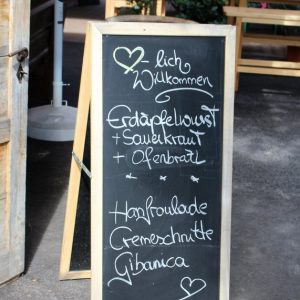 ♡-lich
Willkommen
Erdäpfelwurst
+ Sauerkraut
+ Ofenbratl
* * *
Hanfroulade
Cremeschnitte
Gibanica
♡